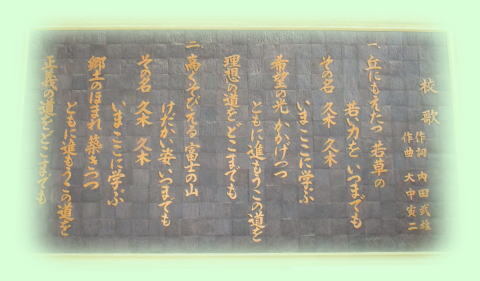 校歌
作詞 内田武雄
作曲 大中寅二
一、丘にもえたつ 若草の
若い力を いつまでも
その名 久木 久木
いまここに学ぶ
希望の光 かかげつつ
ともに進もうこの道を
理想の道を どこまでも
二、高くそびえる 富士の山
けだかい姿 いつまでも
その名 久木 久木
いまここに学ぶ
郷土のほまれ 築きつつ
ともに進もうこの道を
正義の道を どこまでも